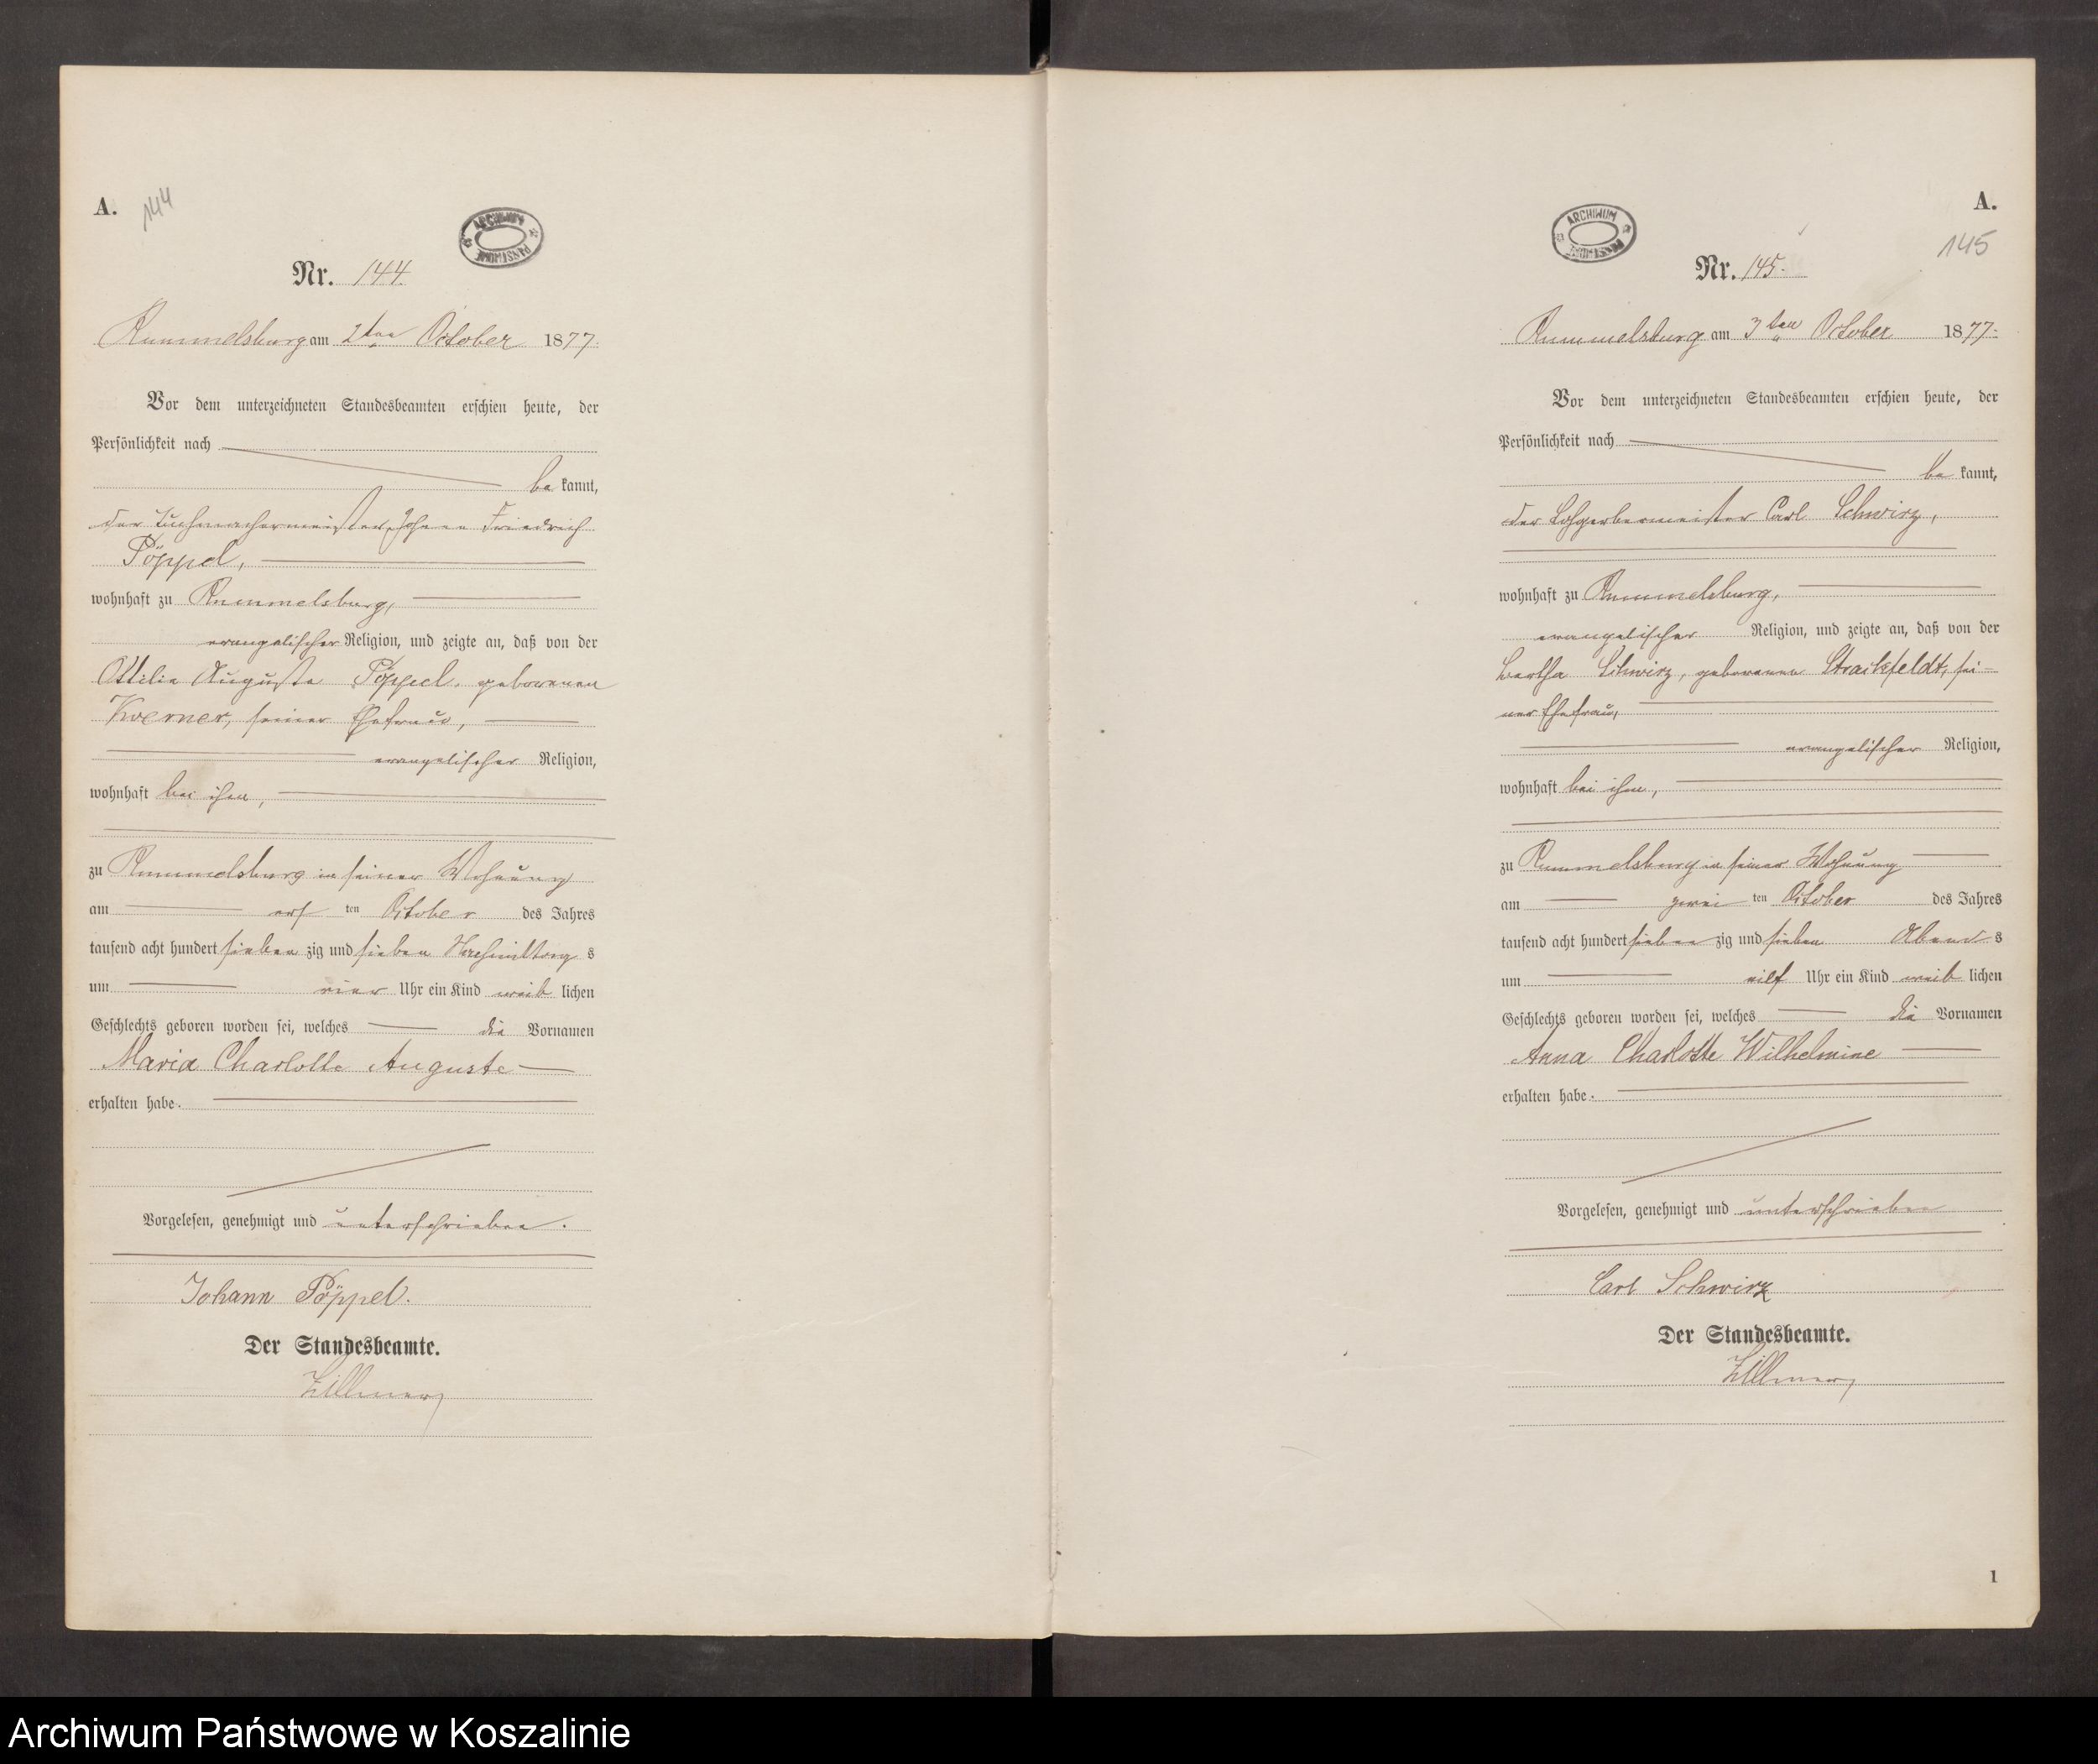 A.
144
ARCHIWUM PAŃSTWOWE
Nr. 144.
Rummelsburg am 2ten October 1877.
Vor dem unterzeichneten Standesbeamten erschien heute, der
Persönlichkeit nach
be kannt,
der Tuchmachermeister Johann Friedrich
Pöppel,
wohnhaft zu Rummelsburg,
evangelischer Religion, und zeigte an, daß von der
Ottilie Auguste Pöppel, geborenen
Kwerner, seiner Ehefrau,
evangelischer Religion,
wohnhaft bei ihm,
zu Rummelsburg in seiner Wohnung
am ersten October des Jahres
tausend acht hundert sieben zig und sieben Nachmittags
um vier Uhr ein Kind weib lichen
Geschlechts geboren worden sei, welches die Vornamen
Maria Charlotte Auguste
erhalten habe.
Vorgelesen, genehmigt und unterschrieben.
Johann Pöppel.
Der Standesbeamte.
Zillmer
A.
145
ARCHIWUM PAŃSTWOWE
Nr. 145.
Rummelsburg am 3ten October 1877.
Vor dem unterzeichneten Standesbeamten erschien heute, der
Persönlichkeit nach
be kannt,
der Lohgerbermeister Carl Schwirz,
wohnhaft zu Rummelsburg,
evangelischer Religion, und zeigte an, daß von der
Bertha Schwirz, geborenen Strackfeldt, sei-
ner Ehefrau,
evangelischer Religion,
wohnhaft bei ihm,
zu Rummelsburg in seiner Wohnung
am zwei ten October des Jahres
tausend acht hundert sieben zig und sieben Abends
um eilf Uhr ein Kind weib lichen
Geschlechts geboren worden sei, welches die Vornamen
Anna Charlotte Wilhelmine
erhalten habe.
Vorgelesen, genehmigt und unterschrieben
Carl Schwirz
Der Standesbeamte.
Zillmer
1
Archiwum Państwowe w Koszalinie